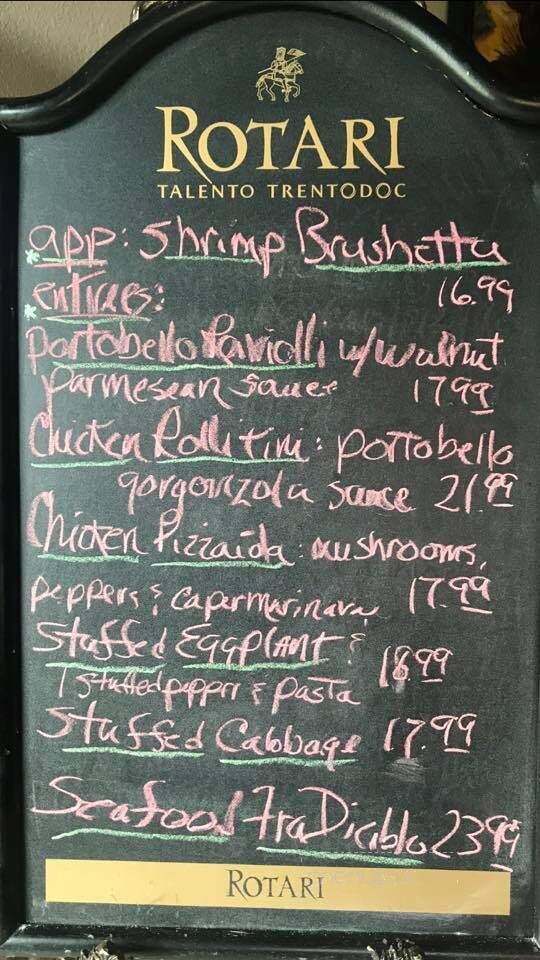 ROTARI
TALENTO TRENTODOC
*app: Shrimp Brushetta
16.99
*entraes:
portobello Raviolli w/walnut
parmesean sauce 17.99
Chicken Rollitini: portobello
gorgonzola sauce 21.99
Chicken Pizzaida: mushrooms,
peppers & caper marinara 17.99
Stuffed Eggplant & 18.99
1 stuffed pepper & pasta
Stuffed Cabbage 17.99
Seafood Fra Diablo 23.99
ROTARI